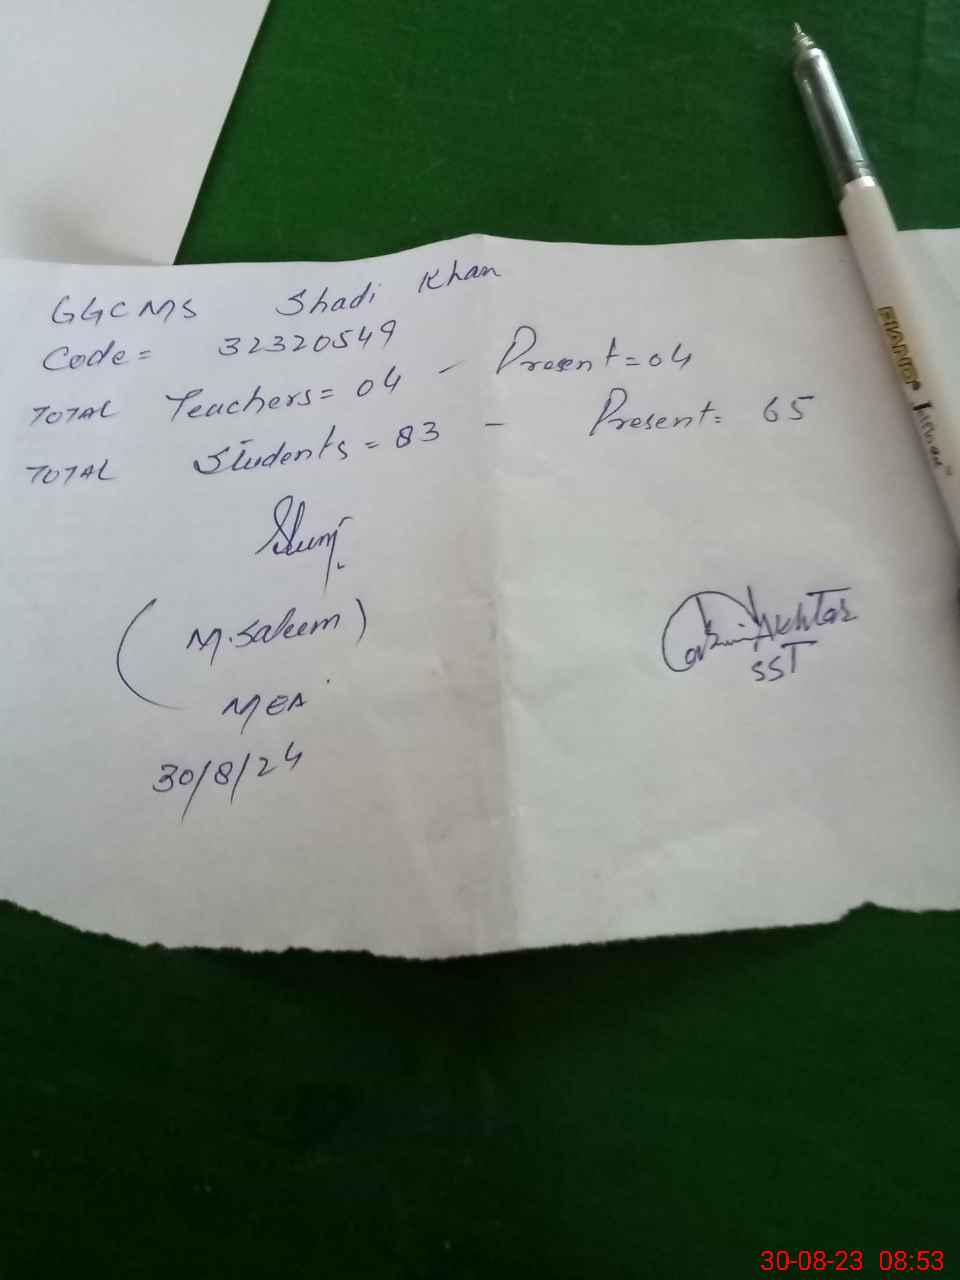 GGCMS Shadi Khan
Code = 32320549
TOTAL Teachers = 04 - Present = 04
TOTAL Students = 83 - Present = 65
(M. Saleem)
MEA
30/8/24
Akhtar
SST
PIANO
30-08-23 08:53